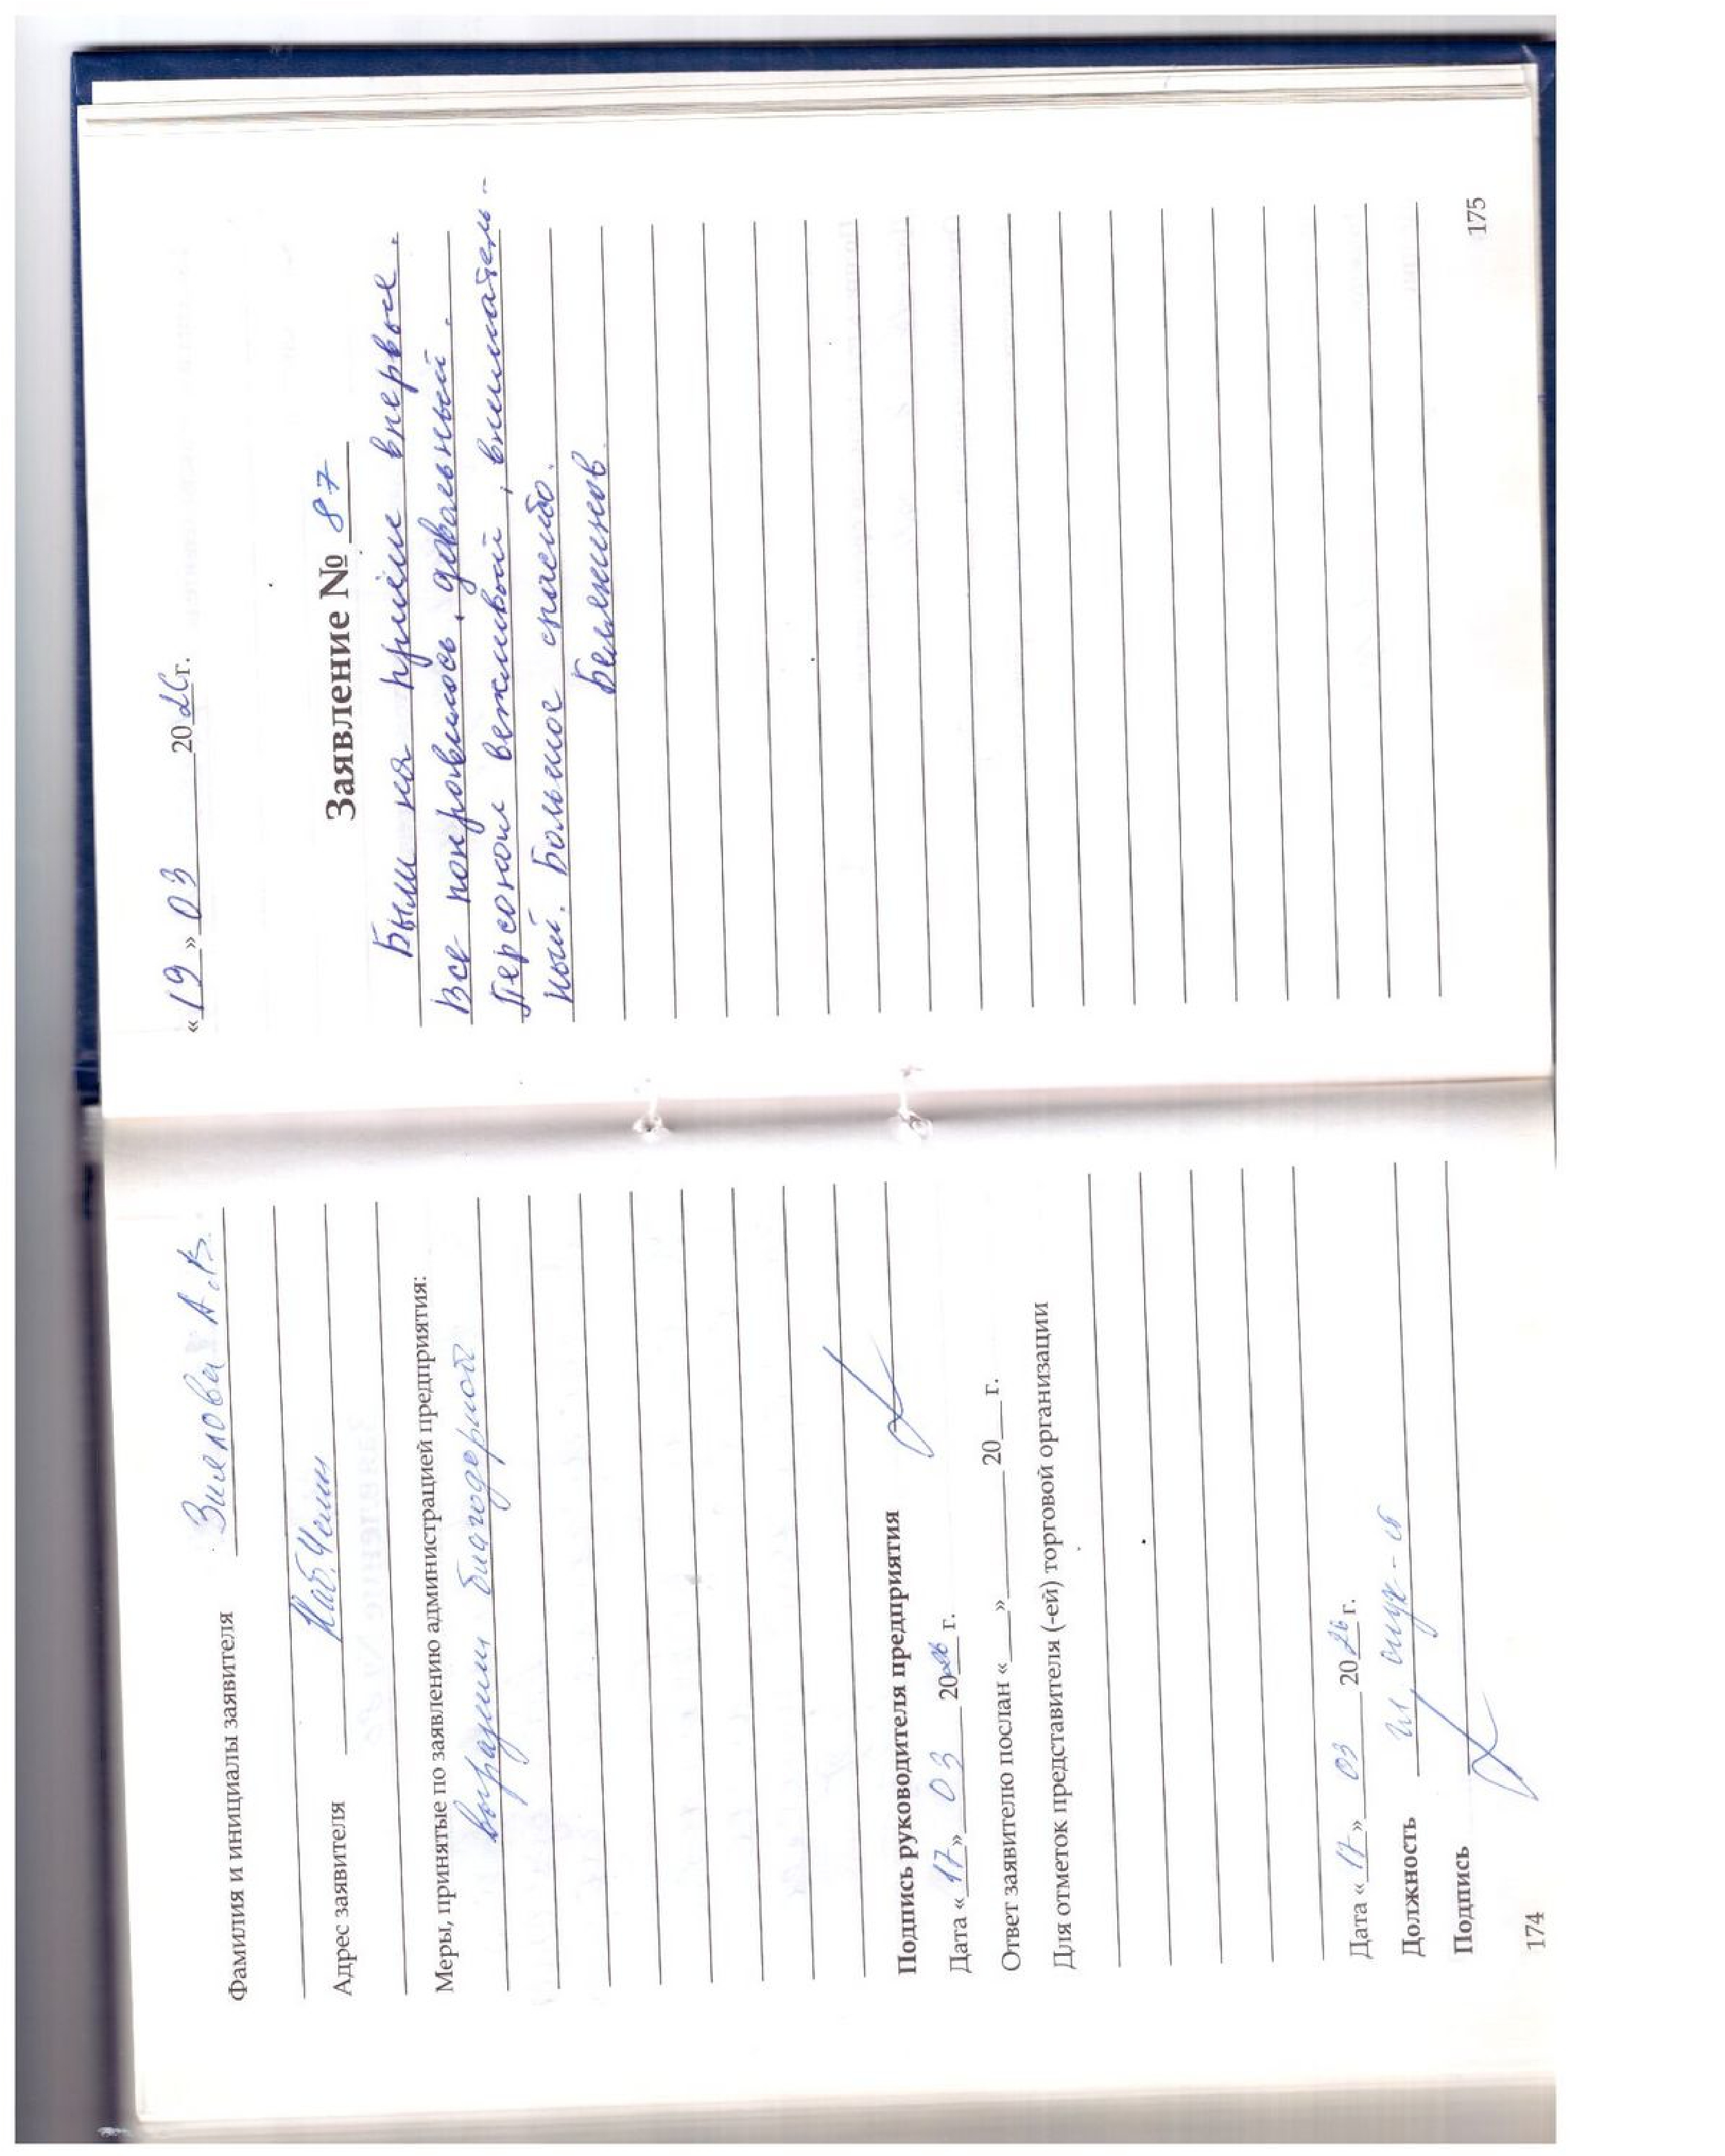 Фамилия и инициалы заявителя
Адрес заявителя Наб. Челны
Меры, принятые по заявлению администрацией предприятия:
выразили благодарность
Подпись руководителя предприятия
Дата «17» 03 2026 г.
Ответ заявителю послан «___»________20___г.
Для отметок представителя (-ей) торговой организации
Дата «17» 03 2026 г.
Должность
Подпись
174
«19» 03 2026 г.
Заявление № 87
Были на приёме впервые.
Все понравилось,
Персонал вежливый, вниматель-
ный. Большое спасибо.
175